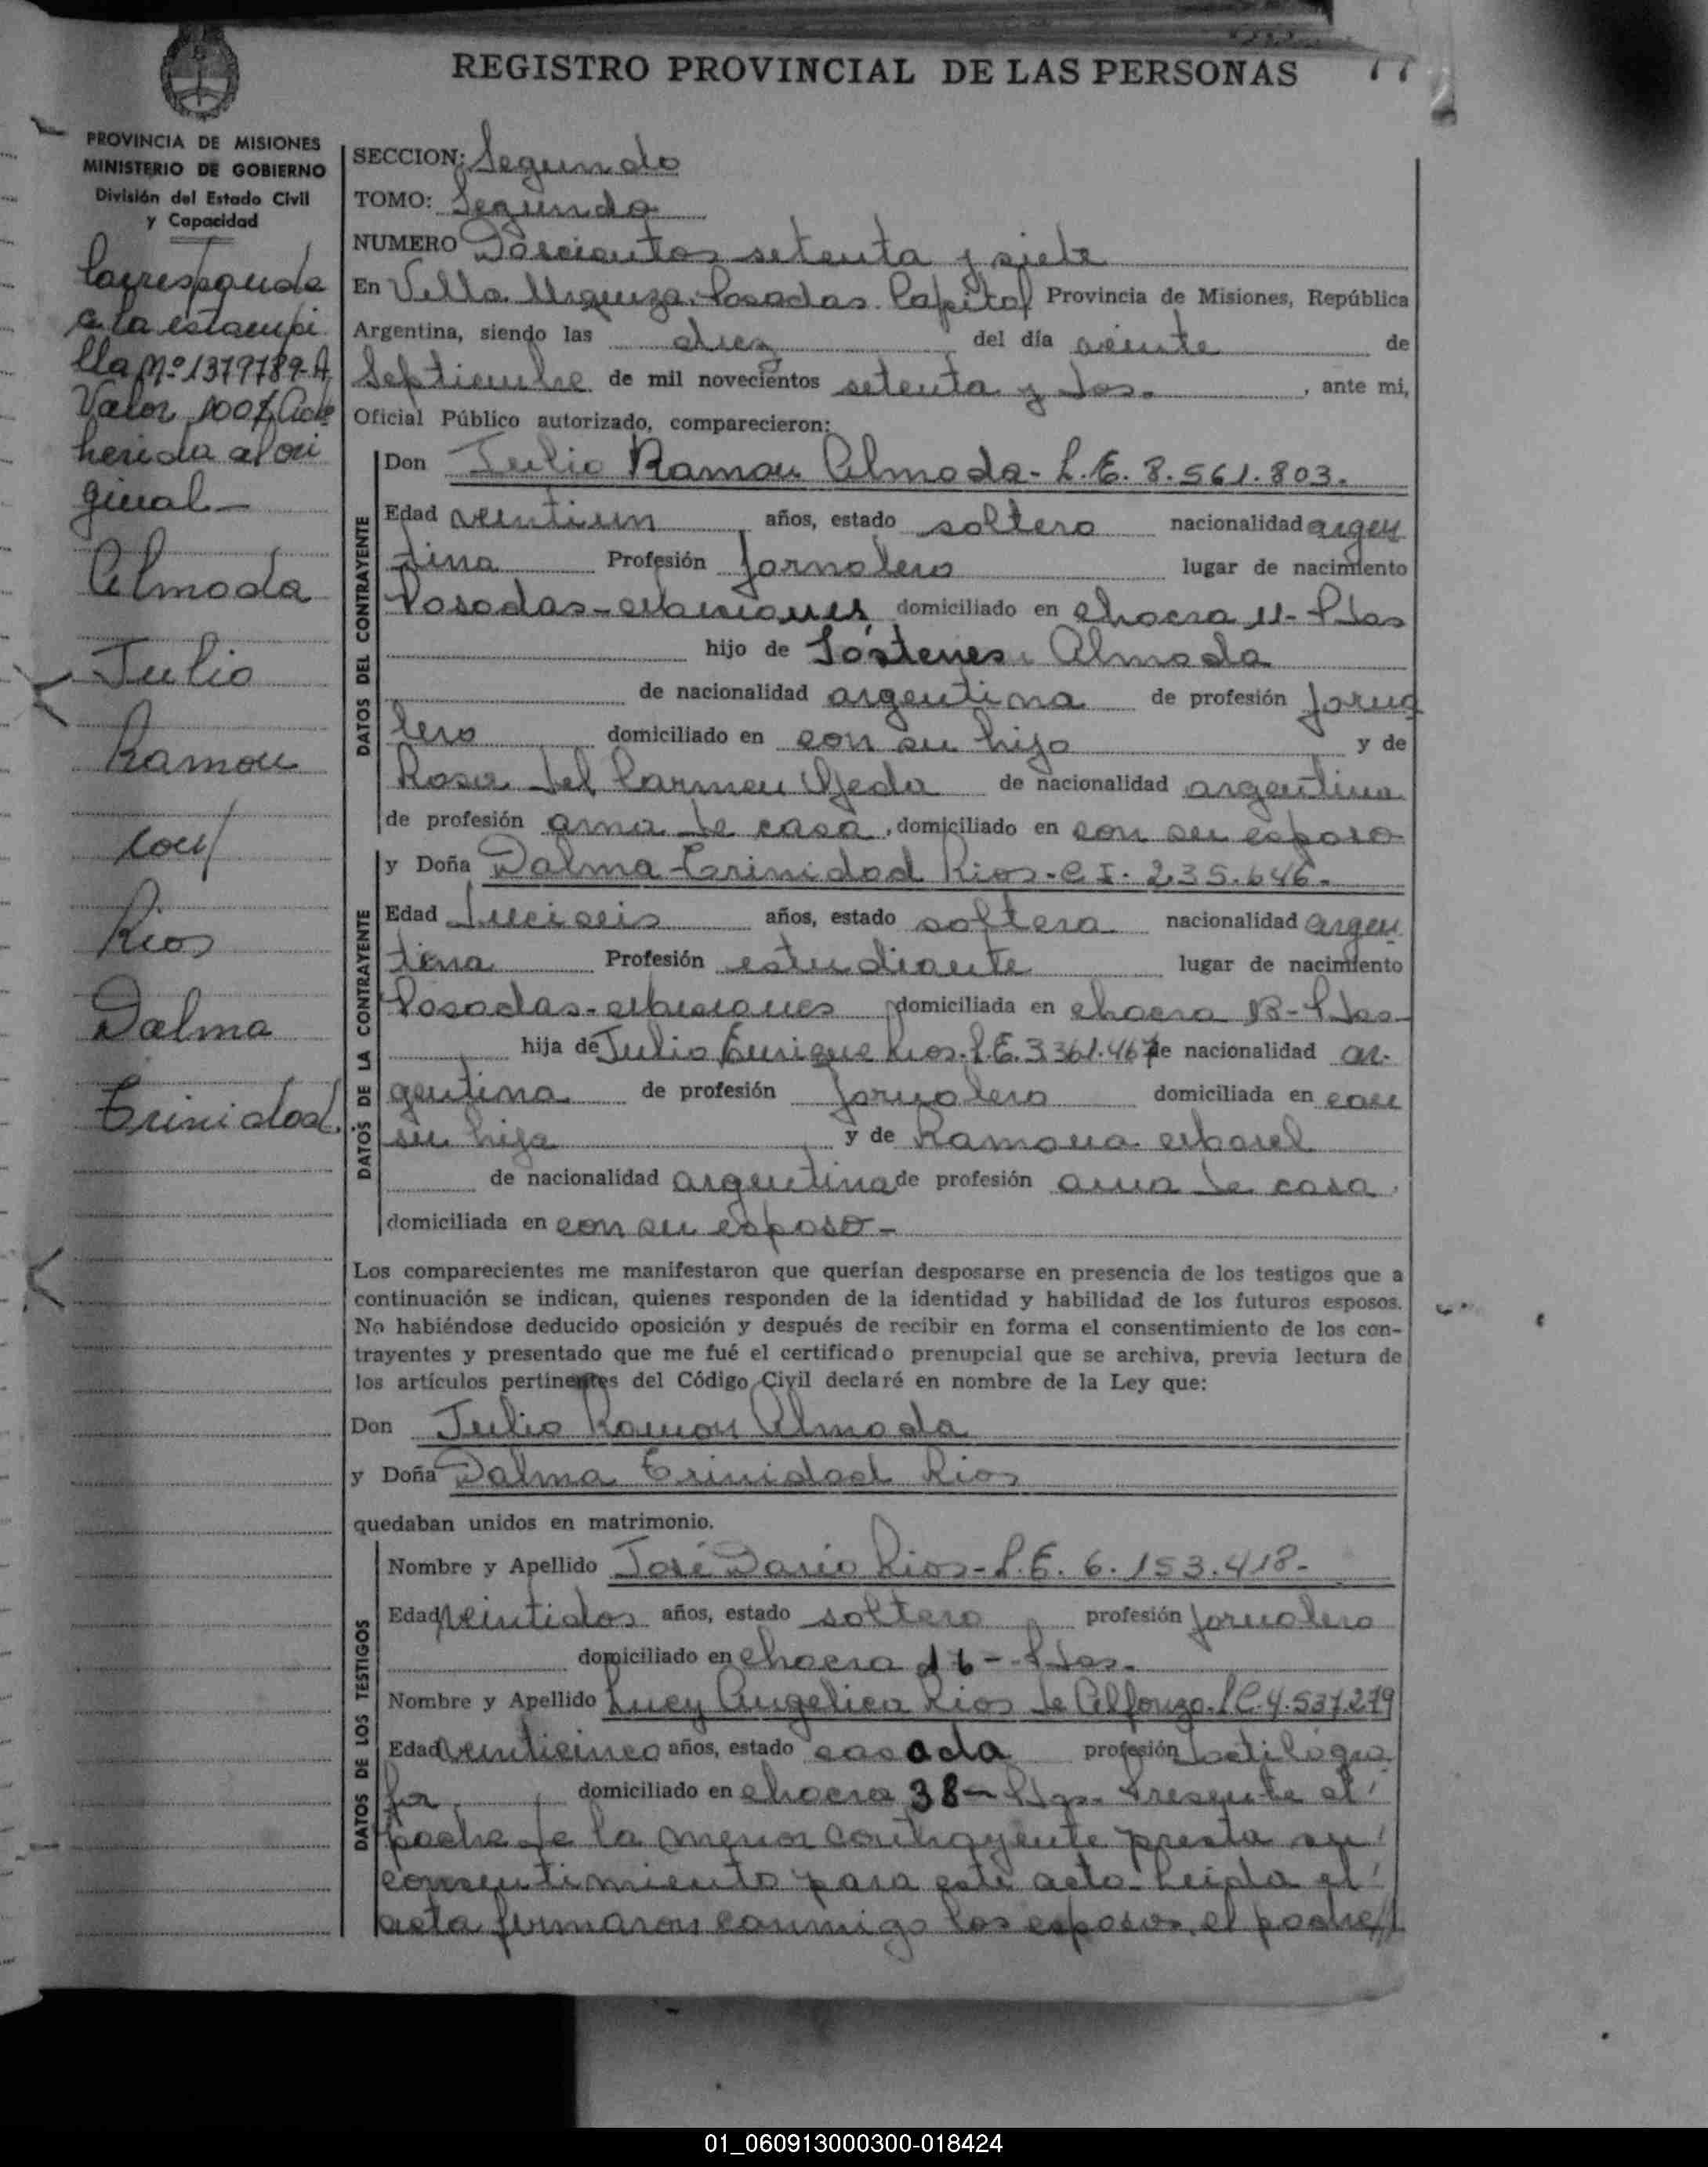 REGISTRO PROVINCIAL DE LAS PERSONAS
PROVINCIA DE MISIONES
MINISTERIO DE GOBIERNO
División del Estado Civil
y Capacidad
Corresponde
a la estampi
lla Nº 1379789-A
Valor 100 $ Adhe
herida al ori
ginal
Almada
Julio
Ramon
con
Rios
Dalma
Trinidad
SECCION: Segundo
TOMO: Segundo
NUMERO Doscientos setenta y siete
En Villa Urquiza-Posadas Capital Provincia de Misiones, República
Argentina, siendo las diez del día veinte de
Septiembre de mil novecientos setenta y dos.- , ante mi,
Oficial Público autorizado, comparecieron:
DATOS DEL CONTRAYENTE
Don Julio Ramon Almada- L.E. 8.561.803.
Edad ventiun años, estado soltero nacionalidad argen
tina Profesión Jornalero lugar de nacimiento
Posadas-Misiones domiciliado en chacra 11- Pdas
hijo de Sóstenes Almada
de nacionalidad argentina de profesión Jorna
lero domiciliado en con su hijo y de
Rosa del Carmen Ojeda de nacionalidad argentina
de profesión ama de casa , domiciliado en con su esposo
DATOS DE LA CONTRAYENTE
y Doña Dalma Trinidad Rios-C I- 235.646.-
Edad dieciseis años, estado soltera nacionalidad argen
tina Profesión estudiante lugar de nacimiento
Posadas-Misiones domiciliada en chacra 13-Pdas
hija de Julio Enrique Rios-L.E. 3.361.467 de nacionalidad ar-
gentina de profesión Jornalero domiciliada en con
su hija y de Ramona Morel
de nacionalidad argentina de profesión ama de casa.
domiciliada en con su esposo-
Los comparecientes me manifestaron que querían desposarse en presencia de los testigos que a
continuación se indican, quienes responden de la identidad y habilidad de los futuros esposos.
No habiéndose deducido oposición y después de recibir en forma el consentimiento de los con-
trayentes y presentado que me fué el certificado prenupcial que se archiva, previa lectura de
los artículos pertinentes del Código Civil declaré en nombre de la Ley que:
Don Julio Ramon Almada
y Doña Dalma Trinidad Rios
quedaban unidos en matrimonio.
DATOS DE LOS TESTIGOS
Nombre y Apellido José Dario Rios-L.E. 6.153.418-
Edad veintidos años, estado soltero profesión Jornalero
domiciliado en chacra 16-Pdas.
Nombre y Apellido Lucy Angelica Rios de Alfonzo-L.C. 4.537.279
Edad venticinco años, estado casada profesión dactilógra
fa domiciliado en chacra 38- Pdas- Presente el
padre de la menor contrayente presta su
consentimiento para este acto- Leída el
acta firmaron conmigo los esposos, el padre//
01_060913000300-018424